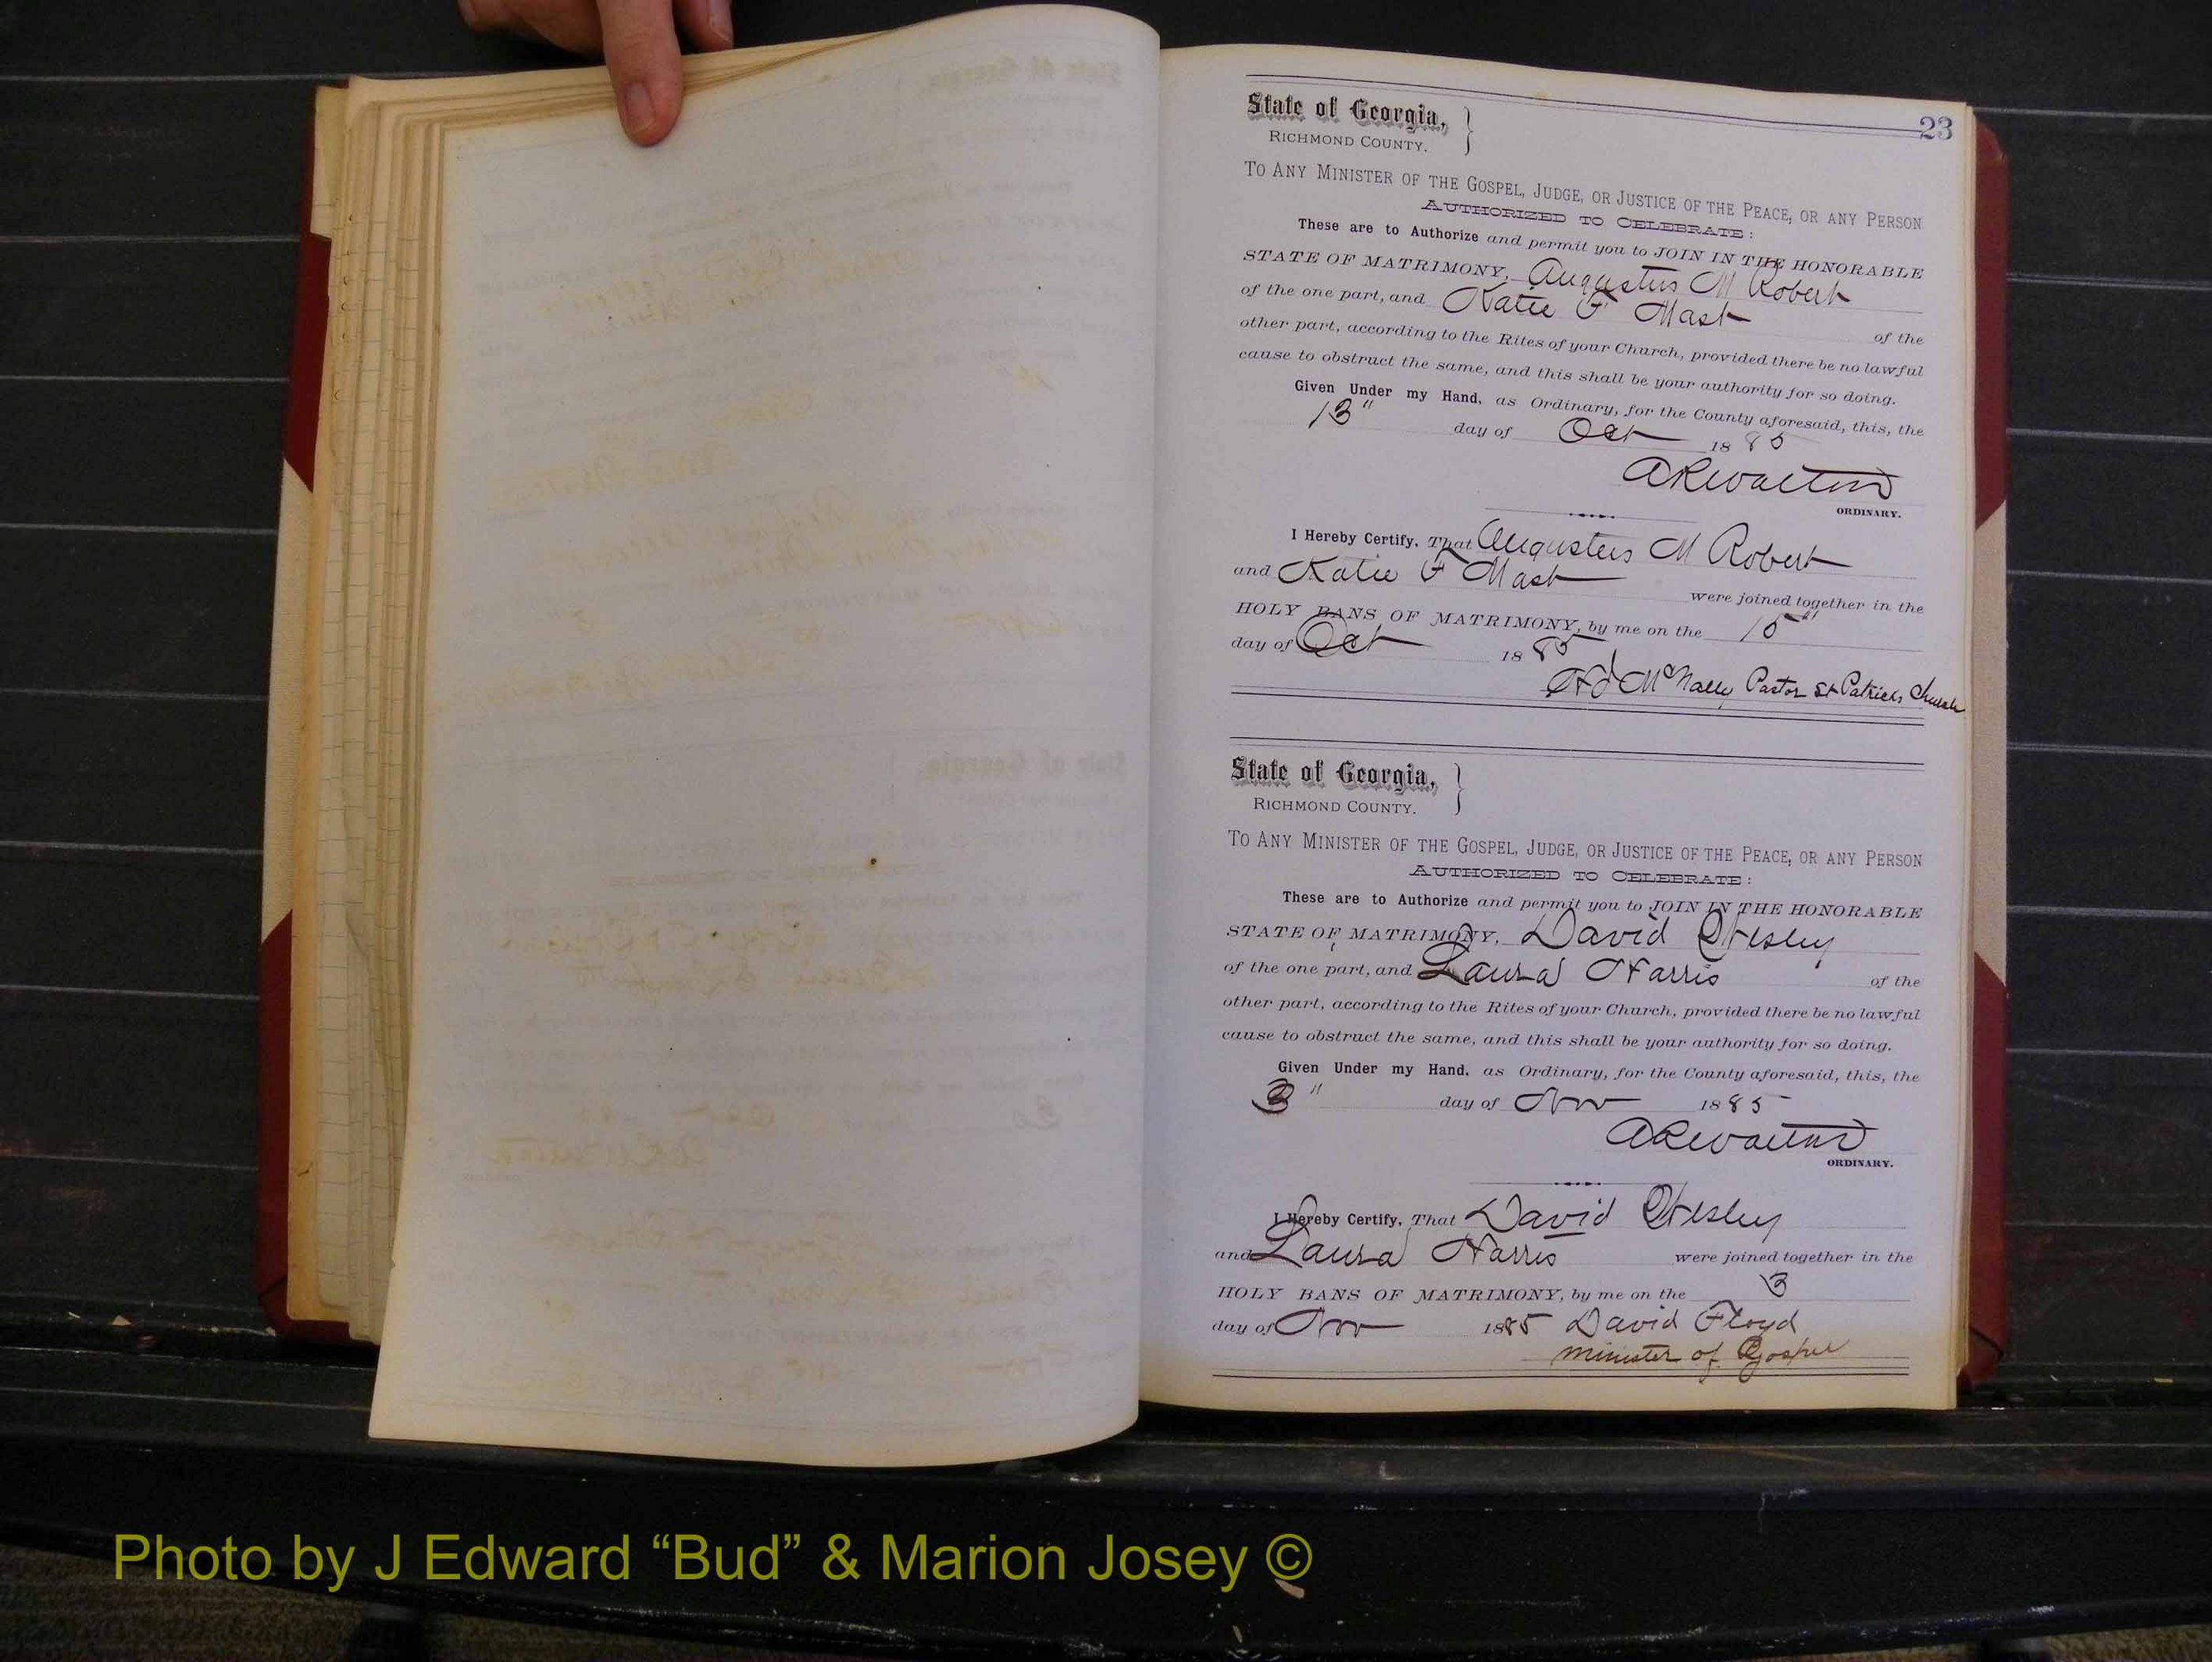 23
State of Georgia,
RICHMOND COUNTY.
TO ANY MINISTER OF THE GOSPEL, JUDGE, OR JUSTICE OF THE PEACE, OR ANY PERSON
AUTHORIZED TO CELEBRATE:
These are to Authorize and permit you to JOIN IN THE HONORABLE
STATE OF MATRIMONY, Augustus M Robert
of the one part, and Katie F Mast of the
other part, according to the Rites of your Church, provided there be no lawful
cause to obstruct the same, and this shall be your authority for so doing.
Given Under my Hand, as Ordinary, for the County aforesaid, this, the
13" day of Oct 1885
A R Walton
ORDINARY.
I Hereby Certify, That Augustus M Robert
and Katie F Mast were joined together in the
HOLY BANS OF MATRIMONY, by me on the 15"
day of Oct 1885
McNally Pastor St Patricks Church
State of Georgia,
RICHMOND COUNTY.
TO ANY MINISTER OF THE GOSPEL, JUDGE, OR JUSTICE OF THE PEACE, OR ANY PERSON
AUTHORIZED TO CELEBRATE:
These are to Authorize and permit you to JOIN IN THE HONORABLE
STATE OF MATRIMONY, David Wesley
of the one part, and Laura Harris of the
other part, according to the Rites of your Church, provided there be no lawful
cause to obstruct the same, and this shall be your authority for so doing.
Given Under my Hand, as Ordinary, for the County aforesaid, this, the
3" day of Nov 1885
A R Walton
ORDINARY.
I Hereby Certify, That David Wesley
and Laura Harris were joined together in the
HOLY BANS OF MATRIMONY, by me on the 3
day of Nov 1885 David Floyd
minister of Gospel
Photo by J Edward “Bud” & Marion Josey ©